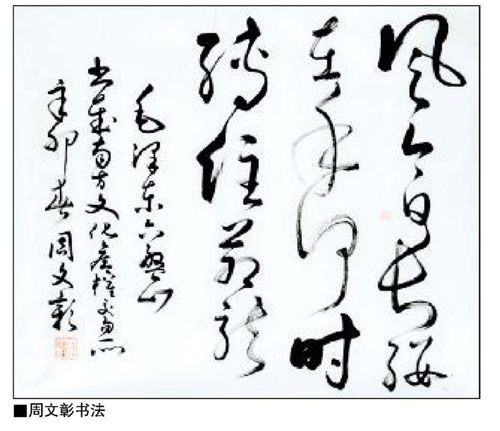 风今日长缨
在手何时
缚住苍龙
毛泽东六盘山
书南方文化産權交易所
辛卯春周文彰
■周文彰书法